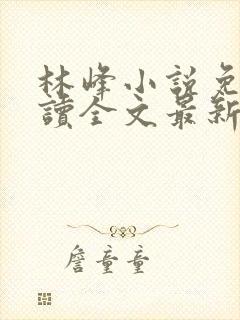 林峰小說免
讀全文最新
詹童童